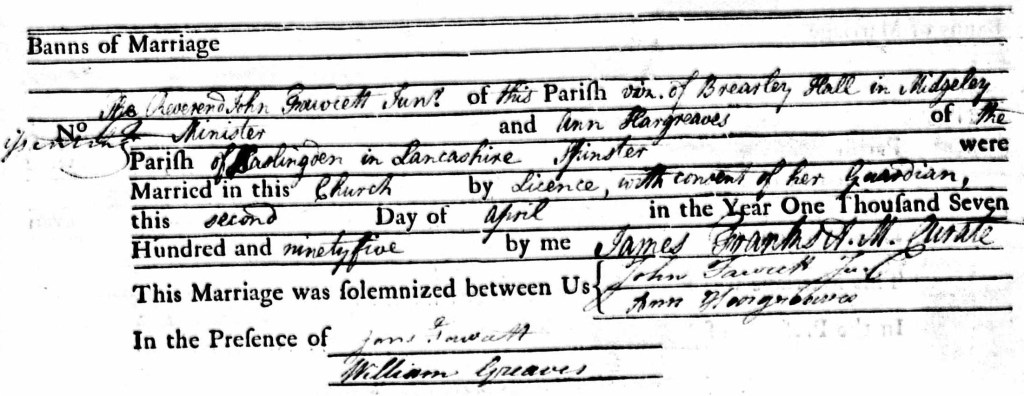 Banns of Marriage
The Reverend John Fawcett Junr. of this Pariſh viz. of Brearley Hall in Midgeley
No Minister and Ann Hargreaves of the
Pariſh of Haslingden in Lancashire Spinster were
Married in this Church by Licence, with consent of her Guardian,
this second Day of April in the Year One Thouſand Seven
Hundred and ninetyfive by me James Franks A.M. Curate
This Marriage was ſolemnized between Us John Fawcett Jur
Ann Hargreaves
In the Preſence of Fawcett
William Greaves